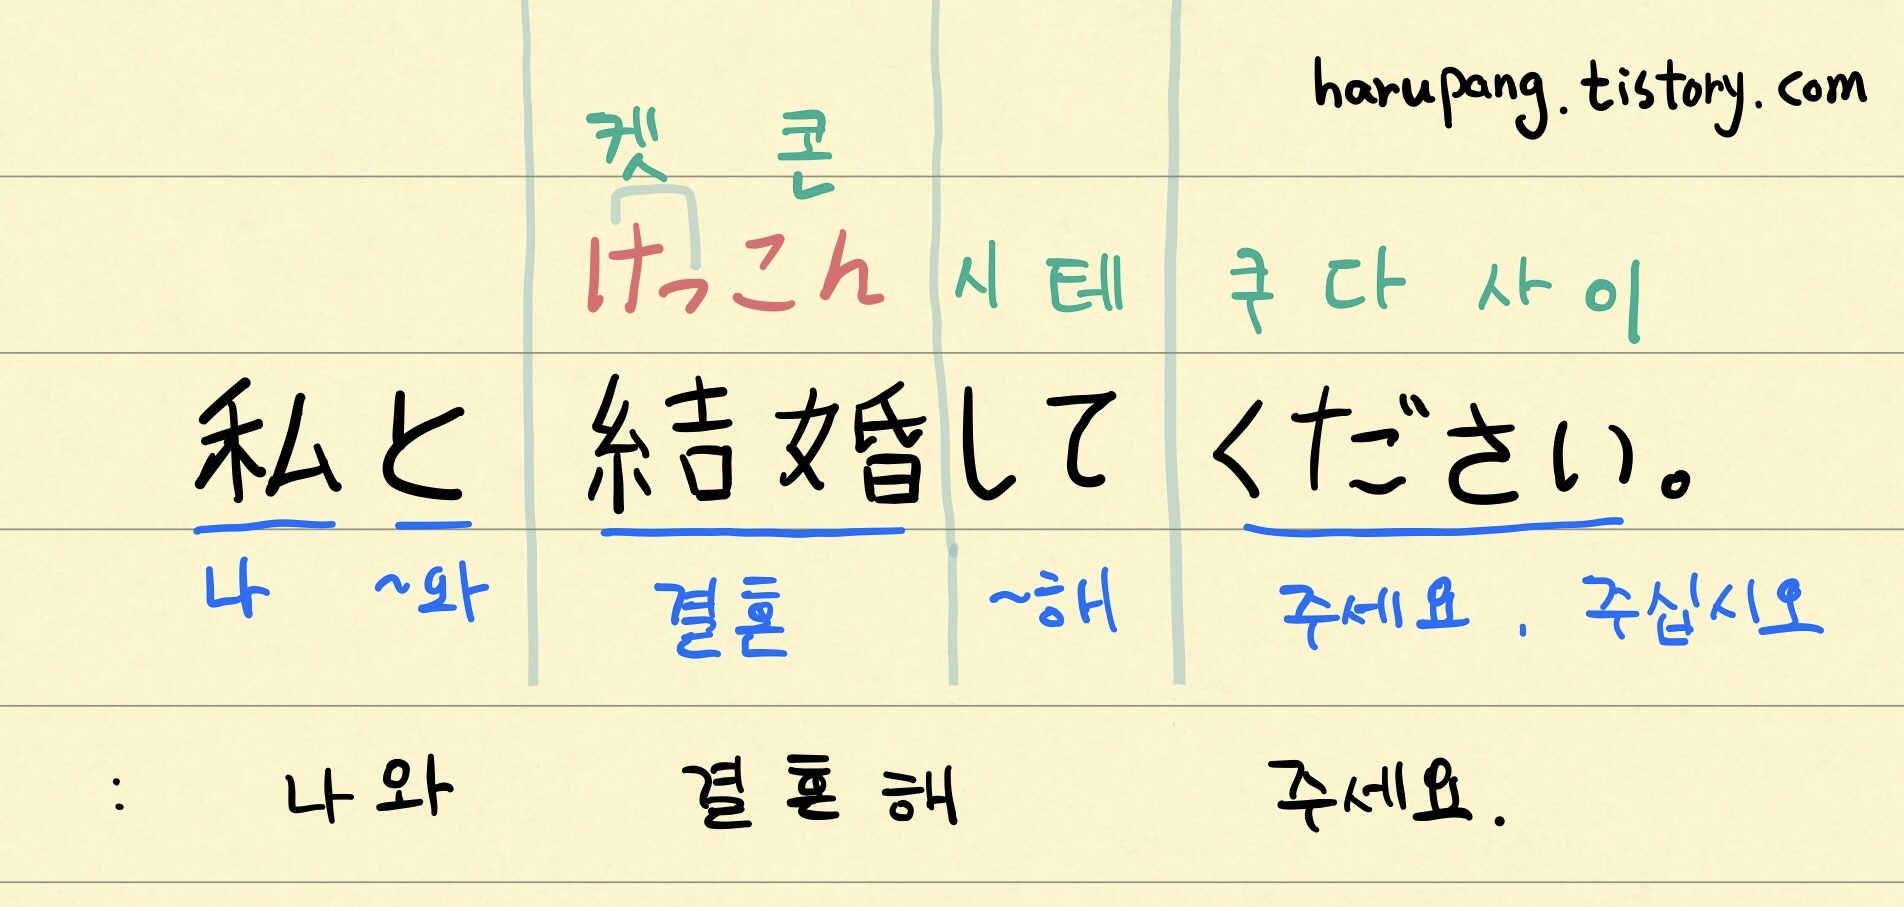 harupang.tistory.com
켓 콘
けっこん 시 테 쿠 다 사 이
私と 結婚して ください。
나 ~와 결혼 ~해 주세요. 주십시오
: 나와 결혼해 주세요.